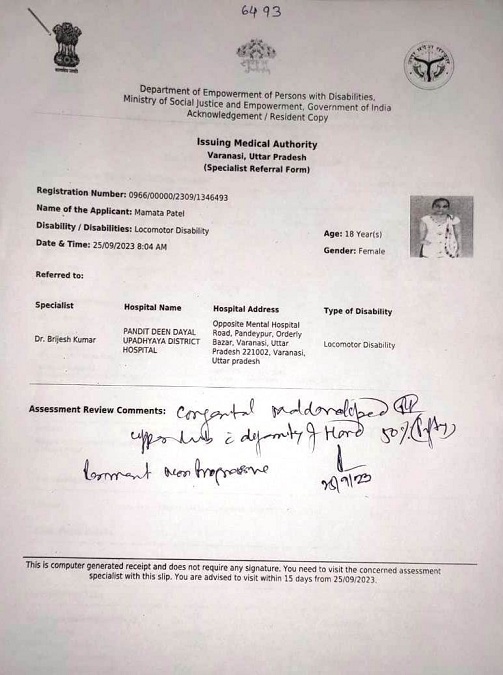 6493
Department of Empowerment of Persons with Disabilities,
Ministry of Social Justice and Empowerment, Government of India
Acknowledgement / Resident Copy
Issuing Medical Authority
Varanasi, Uttar Pradesh
(Specialist Referral Form)
Registration Number: 0966/00000/2309/1346493
Name of the Applicant: Mamata Patel
Disability / Disabilities: Locomotor Disability
Date & Time: 25/09/2023 8:04 AM
Age: 18 Year(s)
Gender: Female
Referred to:
Specialist Hospital Name Hospital Address Type of Disability
Dr. Brijesh Kumar
PANDIT DEEN DAYAL
UPADHYAYA DISTRICT
HOSPITAL
Opposite Mental Hospital
Road, Pandeypur, Orderly
Bazar, Varanasi, Uttar
Pradesh 221002, Varanasi,
Uttar pradesh
Locomotor Disability
Assessment Review Comments: Congenital
upper limb c deformity of Hand 50% (fifty)
25/9/23
This is computer generated receipt and does not require any signature. You need to visit the concerned assessment
specialist with this slip. You are advised to visit within 15 days from 25/09/2023.